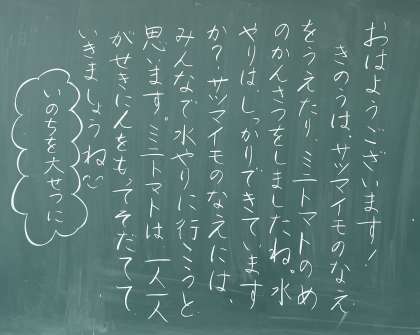 おはようございます!
きのうは、サツマイモのなえ
をうえたり、ミニトマトのめ
のかんさつをしましたね。水
やりは、しっかりできています
か?サツマイモのなえには、
みんなで水やりに行こうと
思います。ミニトマトは、一人一人
がせきにんをもってそだてて
いきましょうね
いのちを大せつに